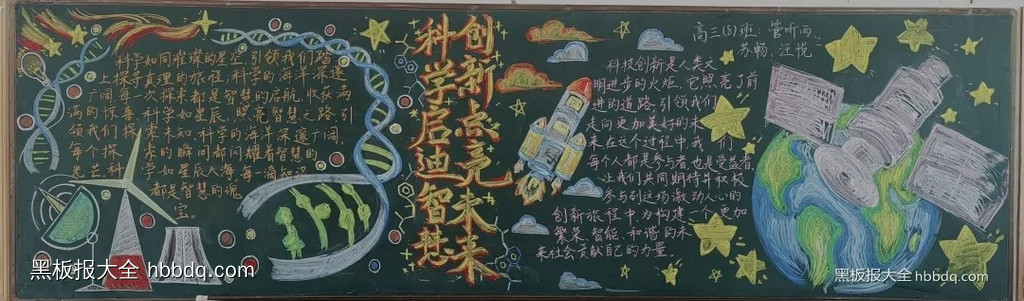 科学如同璀璨的星空,引领我们踏
上探寻真理的旅程,科学的海洋深邃
广阔,每一次探索都是智慧的启航,收获满
满的惊喜,科学如星辰,照亮智慧之路,引
领我们探索未知,科学的海洋深邃广阔,
每个探索的瞬间都闪耀着智慧的
光芒,科学如星辰大海,每一滴知识
都是智慧的瑰
宝。
创新点亮未来
科学启迪智慧
高三(8)班:管昕雨
苏畅、汪悦
科技创新是人类文
明进步的火炬,它照亮了前
进的道路,引领我们
走向更加美好的未
来在这个过程中,我们
每个人都是参与者,也是受益者,
让我们共同期待并积极
参与到这场激动人心的
创新旅程中,为构建一个更加
繁荣、智能、和谐的未
来社会贡献自己的力量。
黑板报大全 hbbdq.com
黑板报大全 hbbdq.com